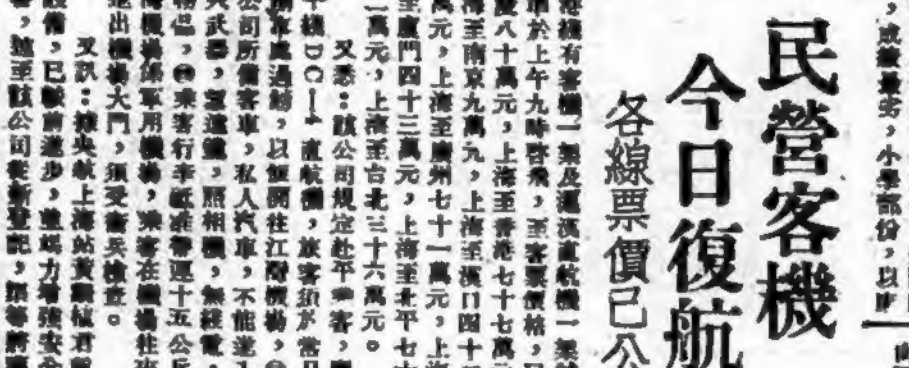 ，成績最劣，小學部份，以
民營客機
今日復航
各線票價已公
港機有客機一架及滬漢直航機一架
於上午九時啓飛，至客票價格，
八十萬元，上海至香港七十七萬
海至南京九萬元，上海至漢口四十
萬元，上海至廣州七十一萬元，上海
至廈門四十三萬元，上海至北平七
萬元，上海至台北三十六萬元。
又悉：該公司規定赴平乘客，
DC—4直航機，旅客須於當日
車處過磅，以便開往江灣機場，
公司所備客車，私人汽車，不能進入
武器，望遠鏡，照相機，無綫電，
物品，乘客行李祇准帶運十五公斤
機場係軍用機場，乘客在機場往來
進出機場大門，須受衞兵檢查。
又訊：據央航上海站黃
設備，已較前進步，並竭力增強安全
，逕至該公司從新登記，